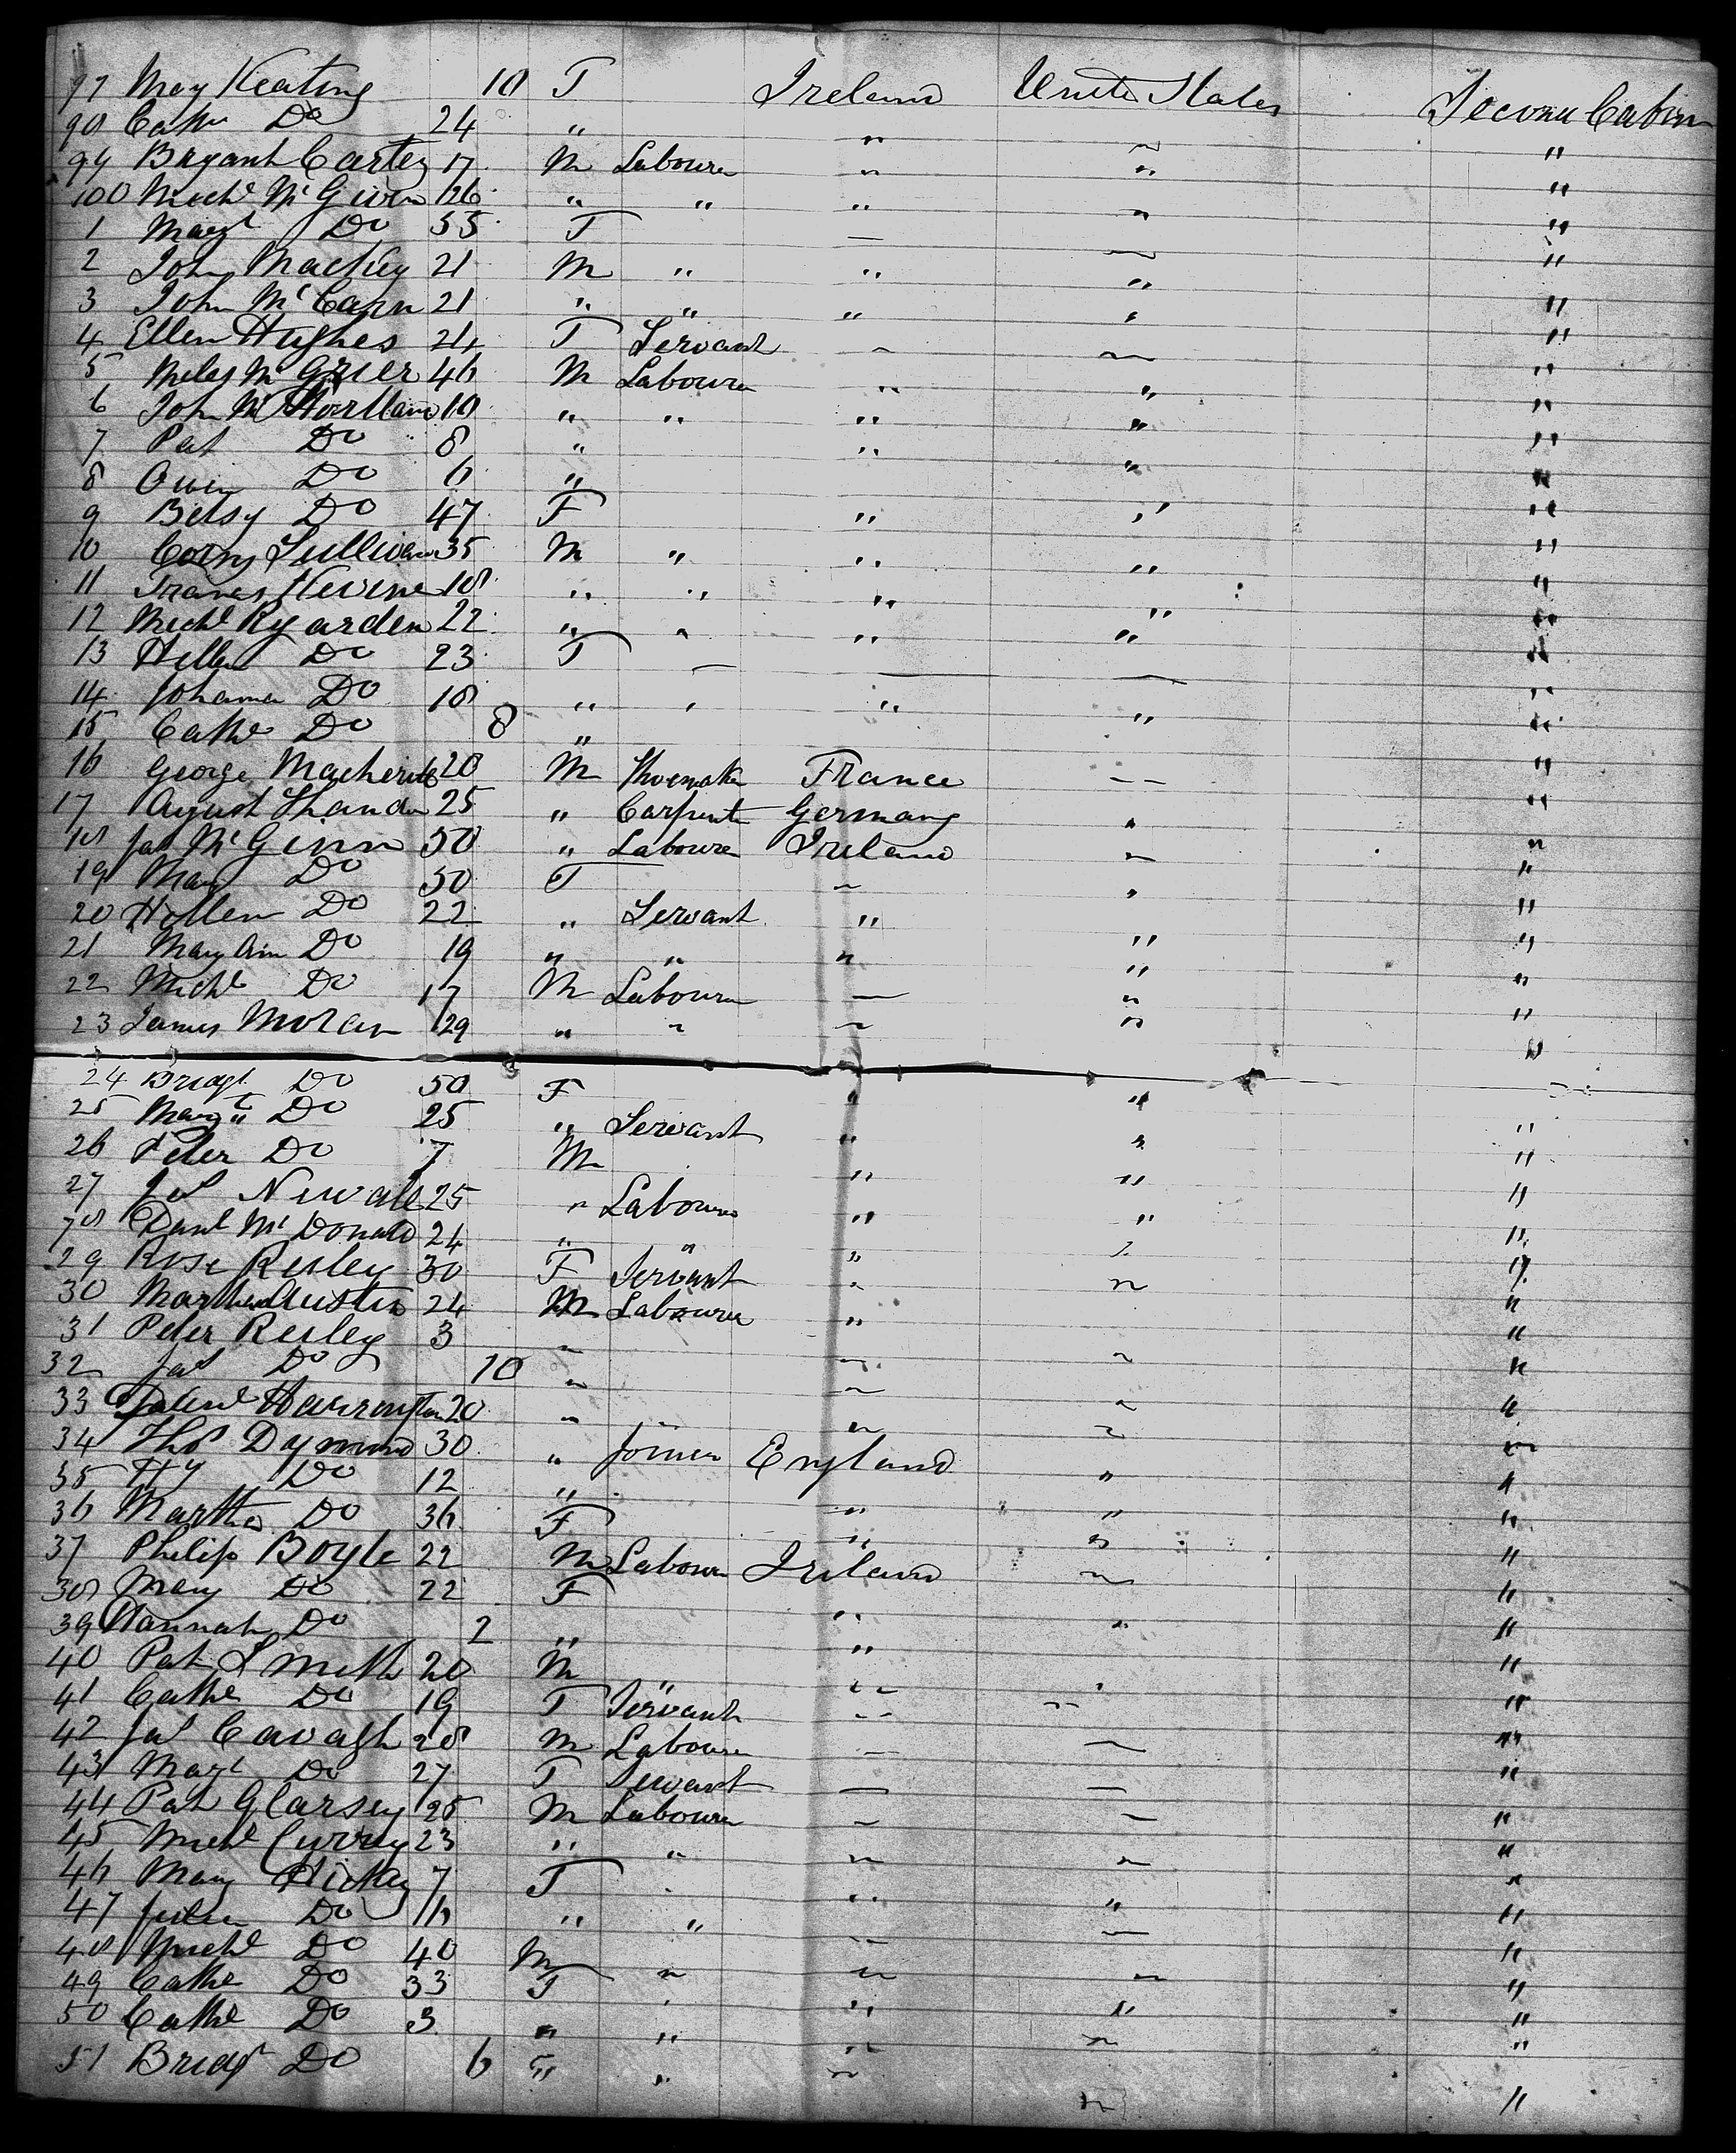 97 Mary Keating 10 F Ireland United States Second Cabin
98 Cathe Do 24 " " ~ "
99 Bryant Carter 17 M Labourer " " "
100 Michl McGivin 26 " " " " "
1 Margt Do 55 F — ~ "
2 John Mackey 21 M " " " "
3 John McCann 21 " " " " "
4 Ellen Hughes 24 F Servant ~ ~ "
5 Miles McGrier 46 M Labourer " " "
6 John 18 " " " " "
7 Pat Do 8 " " " "
8 Owen Do 6 " "
9 Betsy Do 47 F " " "
10 Corns Sullivan 35 M " " " "
11 Frances 18 " " " " "
12 Michl Ryarden 22 " " " " "
13 Hellen Do 23 F — — — "
14 Johanna Do 18 " " " " "
15 Cathe Do 8 " "
16 George 28 M Shoemaker France — "
17 August 25 " Carpenter Germany " "
18 Jas McGinn 50 " Labourer Ireland ~ "
19 Mary Do 50 F ~ " "
20 Hellen Do 22 " Servant " " "
21 Mary Ann Do 19 " " " " "
22 Michl Do 17 M Labourer — " "
23 James Moran 29 " " ~ " "
24 Bridgt Do 50 F " "
25 Margt Do 25 " Servant " " "
26 Peter Do 7 M " " "
27 Jas Newall 25 " Labourer " " "
28 Danl McDonald 24 " " " " "
29 Rose Reiley 30 F Servant " " "
30 Austin 24 M Labourer " "
31 Peter Reiley 3 " ~ ~ "
32 Jas Do 10 " ~ ~ "
33 Danl Harrington 20 " ~ ~ "
34 Thos Dymond 30 " Joiner England " "
35 Hy Do 12 " " " "
36 Martha Do 36 F " " "
37 Philip Boyle 22 M Labourer Ireland ~ "
38 Mary Do 22 F " " "
39 Hannah Do 2 " " "
40 Pat Smith 20 M " " "
41 Cathe Do 19 F Servant " ~ "
42 Jas Cavagh 28 M Labourer — — "
43 Margt Do 27 F Servant — — "
44 Pat Glarsey 25 M Labourer ~ — "
45 Michl Curry 23 " " ~ ~ "
46 Mary Hickey 7 F " " "
47 Do 16 " " — — "
48 Michl Do 40 M " ~ ~ "
49 Cathe Do 33 F " " "
50 Cathe Do 3 " " " ~ "
51 Bridgt Do 6 " " ~ ~ "